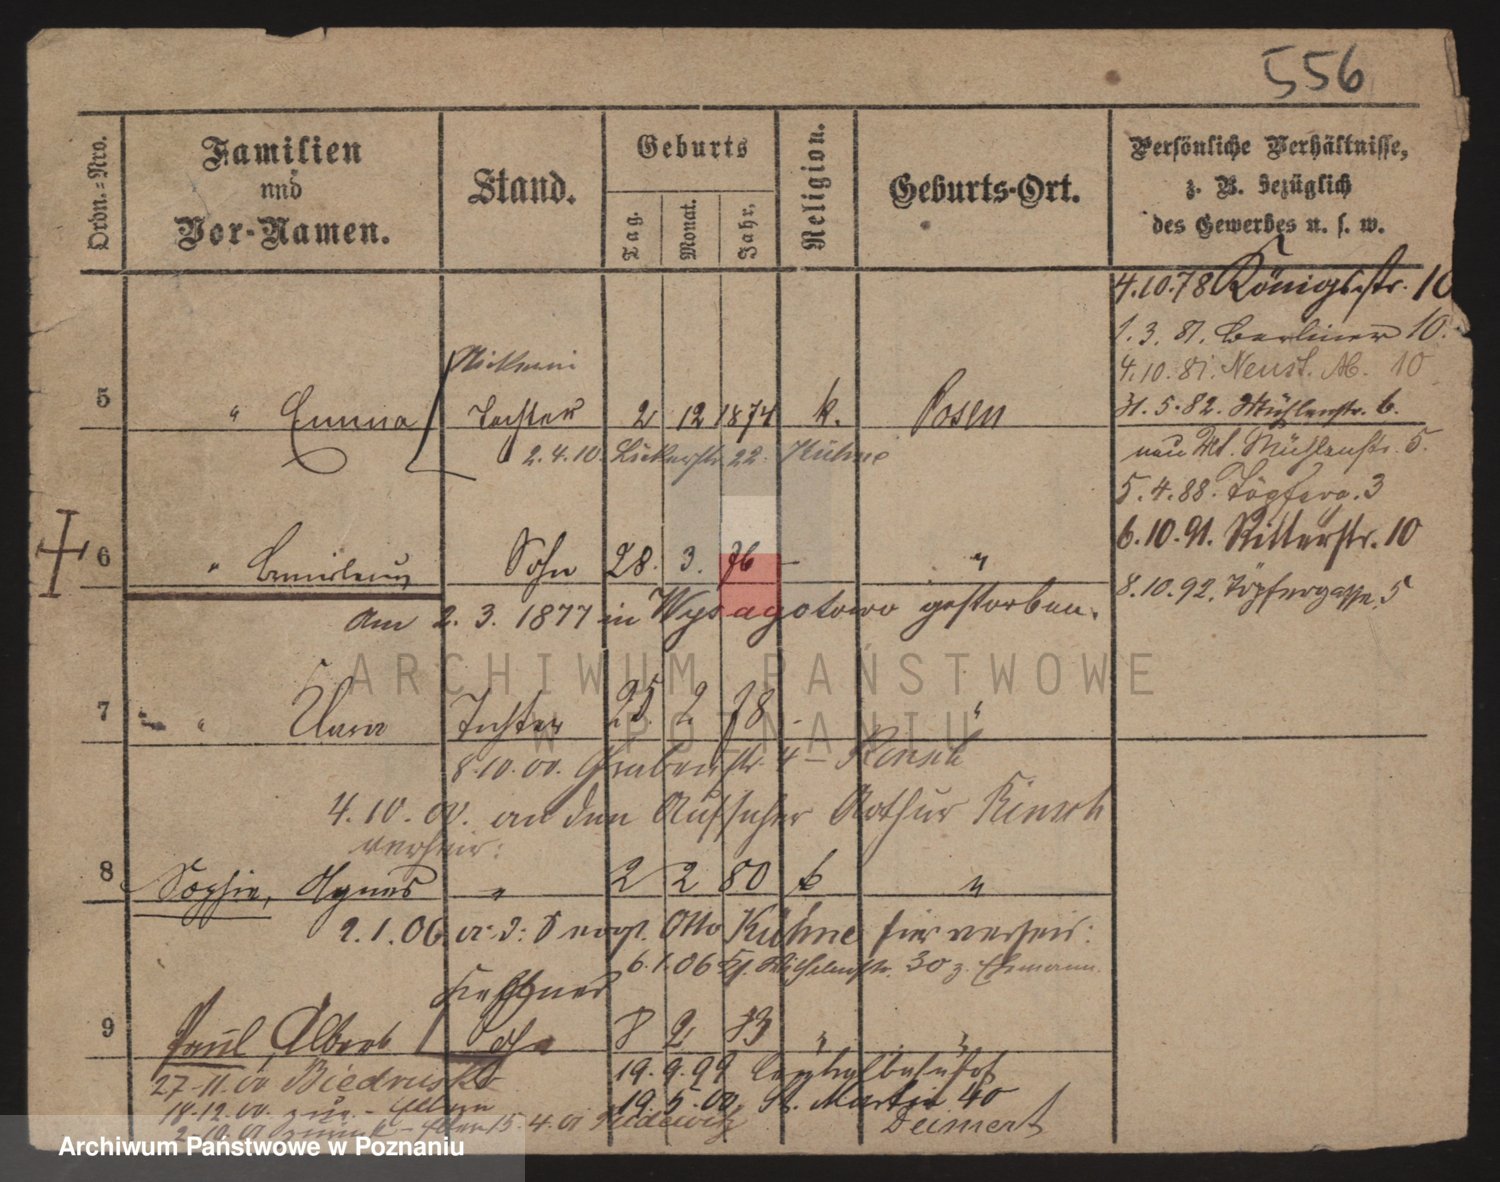 556
Ordn.=Nro.
Familien
und
Vor-Namen.
Stand.
Geburts
Tag.
Monat.
Jahr.
Religion.
Geburts-Ort.
Persönliche Verhältnisse,
z. B. bezüglich
des Gewerbes u. s. w.
4.10.78 Königsstr. 10
1.3.81. Berliner 10.
4.10.81. Neust. M. 10
31.5.82. Mühlenstr. 6.
neu M. Mühlenstr. 5.
5.4.88. Töpferg. 3
6.10.91. Ritterstr. 10
8.10.92. Töpfergasse 5
5 " Emma Tochter 2 12 1874 k. Posen
2.4.10. 22. Kühne
6 " Sohn 28. 3. 76 - "
Am 2. 3. 1877 in Wysogotowo gestorben.
7 " " Clara Tochter 25 2 78 - "
8.10.00. Grabenstr. 4 - Kinsch
4.10.00. an den Aufseher Arthur Kinsch
verheir:
8 Sophie, Agnes " 2 2 80 k "
2.1.06. a. d. Sergt. Otto Kühne hier verheir:
6.1.06 30 z. Ehemann.
Kellner
9 Paul, Albert Sohn 8 2 83 " "
27-11.00 Biedrusko
19.9.99
14-12.00. - Eltern
19.5.00. St. Martin 40
2.10.01 zurück - Eltern 15.4.01
Deimert
ARCHIWUM PAŃSTWOWE
W POZNANIU
Archiwum Państwowe w Poznaniu